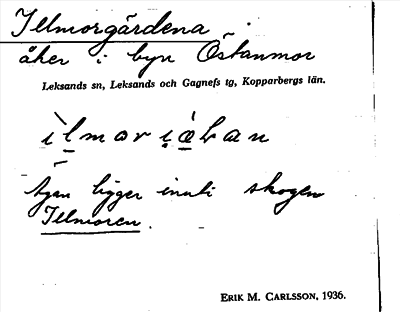 Illmorgärdena
åker i byn Östanmor
Leksands sn, Leksands och Gagnefs tg, Kopparbergs län.
ligger inuti skogen
Illmoren.
ERIK M. CARLSSON, 1936.